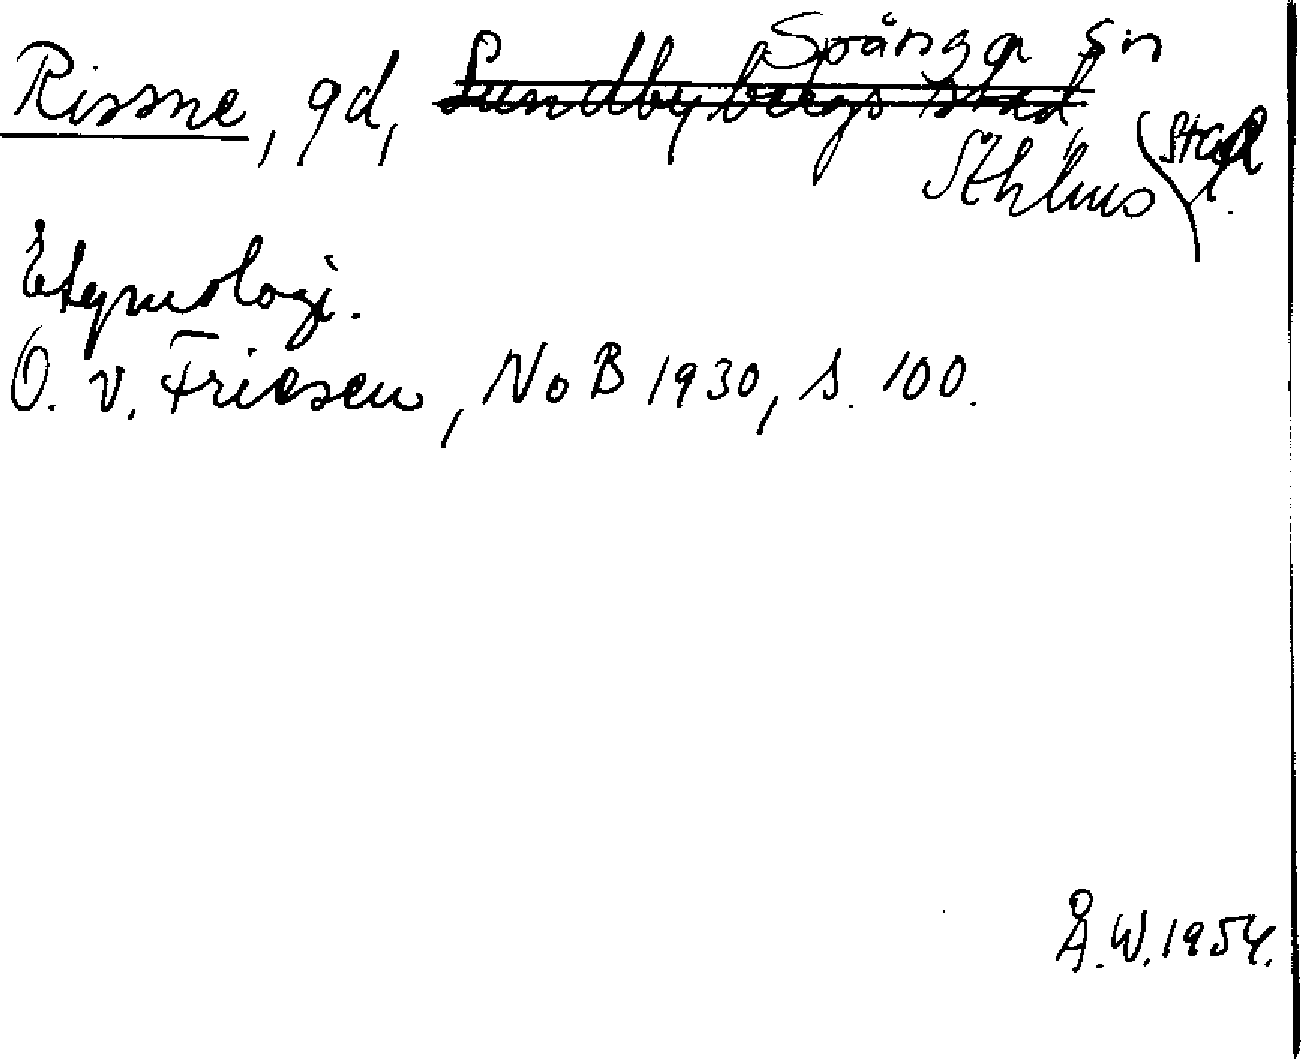 Rissne, gd, Sundbybergs stad, Spånga sn
Sthlms stad
Etymologi.
O. v. Friesen, NoB 1930, s. 100.
Å.W. 1954.